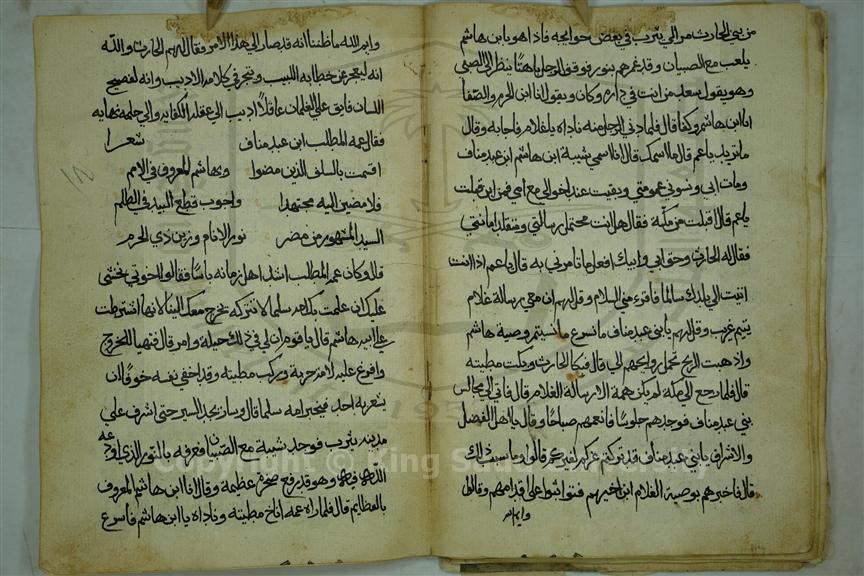 من بني الحارث مر الي يثرب في بعض حوايجه فاذا هو بابن هاشم
يلعب مع الصبيان وقد غمرهم بنور فوقف الرجل باهتا ينظر الي الصبي
وهو يقول سعد من انت في داره وكان ويقول انا ابن الحرم والصفا
انا ابن هاشم وكفا قال فلما دني الرجل منه ناداه يا غلام فاجابه وقال
ما تريد يا عم قال ما اسمك قال انا اسمي شيبة ابن هاشم ابن عبد مناف
ومات ابي وجفوني عمومتي وبقيت عند اخوالي مع امي فمن اين قبلت
يا عم قال اقبلت من مكة فقال هل انت محتمل رسالتي ومتقلد امانتي
فقال له الحارث وحق ابي وابيك افعل ما تامرني به قال يا عم اذا انت
اتيت الي بلدك سالما فاقرء مني السلام وقل لهم ان معي رسالة غلام
يتيم غريب وقل لهم يا بني عبد مناف ما اسرع ما نسيتم وصية هاشم
واذ هبت الريح تحمل روايحهم الي قال فبكا الحارث وركب مطيته
قال فلما رجع الي مكه لم يكن همة الا رسالة الغلام قال فاتي الي مجالس
بني عبد مناف فوجدهم جلوسا فانعمهم صباحا وقال يا اهل الفضل
والاشراف يا بني عبد مناف قد تركتم عزكم لغيركم قالوا وما سبب ذلك
قال فاخبرهم بوصية الغلام ابن اخيهم فتواثبوا علي اقدامهم وقالوا
وايم الله
وايم الله ما ظننا انه قد صار الي هذا الامر فقال لهم الحارث والله
انه ليعجز عن خطابه اللبيب ويتحير في كلامه الاديب وانه لفصيح
اللسان فايق علي الغلمان عاقلا اديب الي عقله الكفايه والي حلمه نهايه
فقال عمه المطلب ابن عبد مناف شعرا
اقسمت بالسلف الذين مضوا وبهاشم المعروف في الامم
فلا مضين اليه مجتهدا واجوب قطع البيد في الظلم
السيد المشهور من مضر نور الانام وزين ذي الحرم
قال وكان عمه المطلب اشد اهل زمانه باسا فقالوا اخوتي نخشي
عليك ان علمت بك امه سلما لا نتركه يخرج معك الينا لانها اشترطت
علي ابيه هاشم قال يا قوم ان لي في ذلك حيلة وامر قال فتهيا للخروج
وافرغ عليه لامة حربه وركب مطيته وقد اخفي نفسه خوفا ان
يشعر به احد فيخبر امه سلما قال وسار يجد السير حتي اشرف علي
مدينه يثرب فوجد شيبة مع الصبيان فعرفه بالنور الذي اودعه
الله فيه وهو قد رفع صخرة عظيمة وقال انا ابن هاشم المعروف
بالعظايم قال فلما راه عمه اناخ مطيته وناداه يا ابن هاشم فاسرع